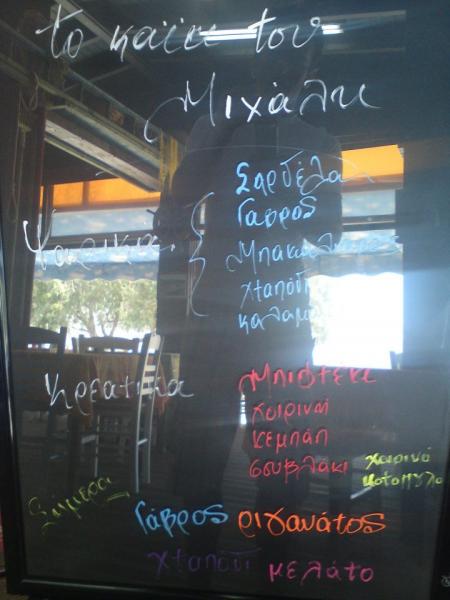 το καΐκι του
Μιχάλη
Ψαρικά
Σαρδέλα
Γαύρος
Μπακαλιάρος
χταπόδι
καλαμ
Κρεατικα
Μπιφτεκι
χοιρινή
κεμπάπ
σουβλάκι χοιρινό
κοτόπουλο
Σήμερα
Γάβρος ριγανάτος
χταπόδι μελάτο